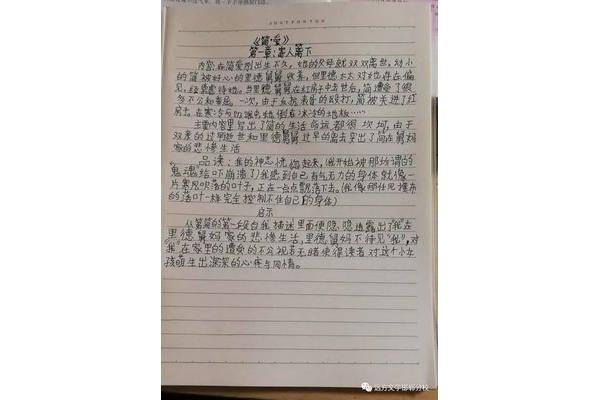 JUSTFORYOU
《简·爱》
第一章:寄人篱下
内容:在简爱刚出生不久,她的父母就双双离世,幼小
的简被好心的里德舅舅收养,但里德太太对她存在偏
见,经常虐待她。当里德舅舅在红房子中去世后,简遭受了很
多不公和毒恶。一次,由于反抗表哥的殴打,简被关进了红
房子。在寒冷与饥饿中她倒在冰冷的地板……
主要内容里写出了简的生活命运都很坎坷,由于
双亲的过早逝世和里德舅舅过早的离去突出了简在舅妈
家的悲惨生活
品读:我的神志恍惚起来,(我开始被那所谓的
鬼魂给吓崩溃了)我感到自己有气无力的身体就像一
片寒风吹落的叶子,正在一点点飘落下去。(我像那任风摆布
的落叶一样完全控制不住自己的身体)
启示
从简简的第一段自我描述里面便隐隐透露出了"我"在
里德舅妈家的悲惨生活,里德舅妈不待见"我",对
"我"在家里的遭受的不公视若无睹使得读者对这个小女
孩萌生出深深的心疼与同情。
远方文学邯郸分校